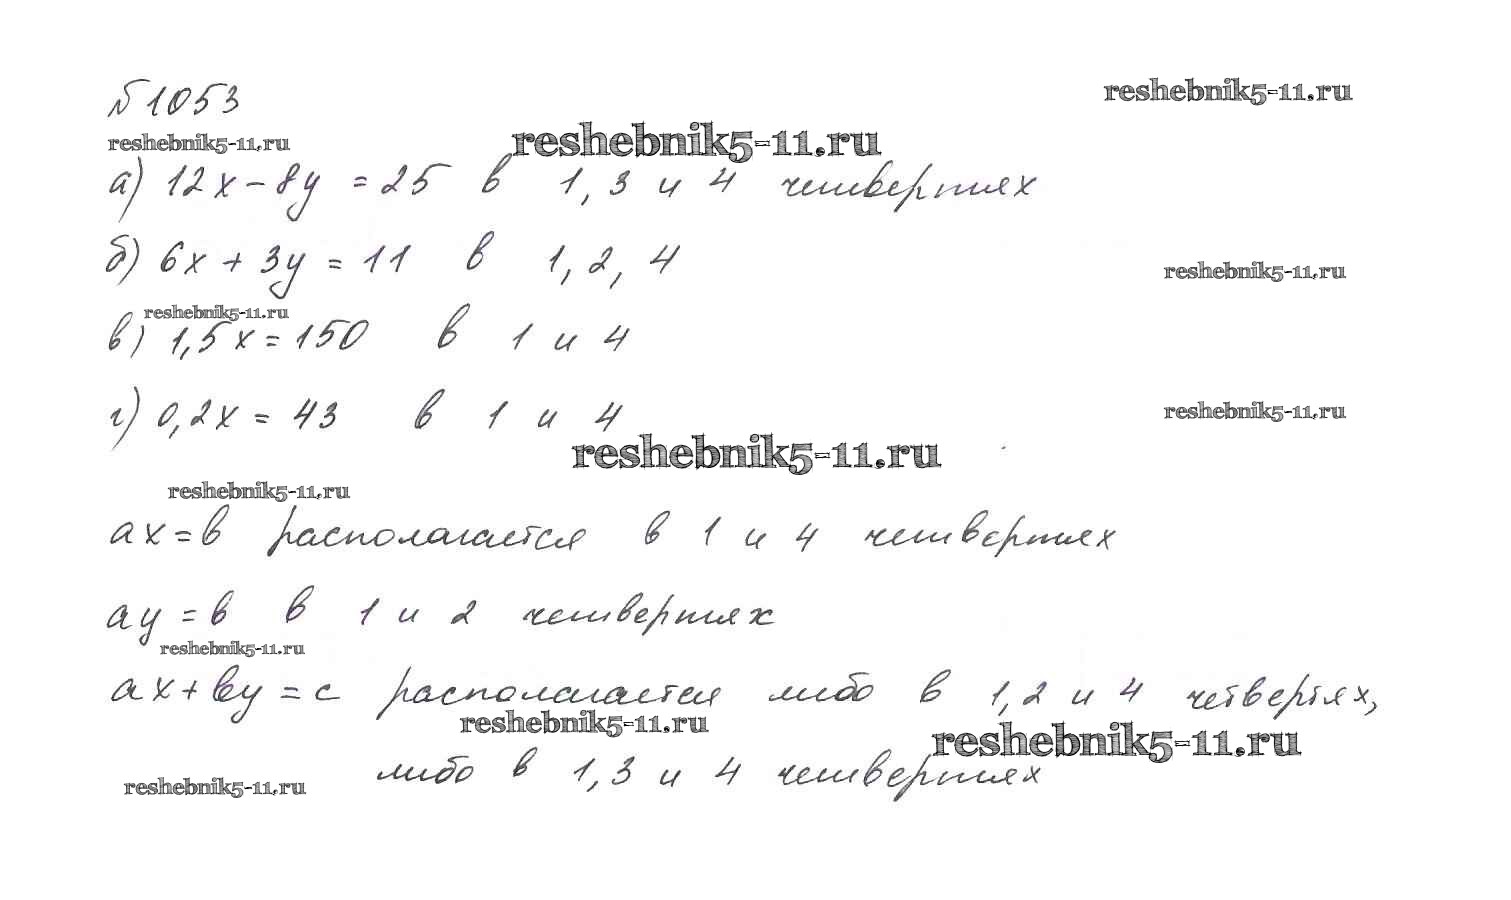 №1053
reshebnik5-11.ru
reshebnik5-11.ru reshebnik5-11.ru
а) 12x - 8y = 25 в 1, 3 и 4 четвертях
б) 6x + 3y = 11 в 1, 2, 4
reshebnik5-11.ru
reshebnik5-11.ru
в) 1,5x = 150 в 1 и 4
г) 0,2x = 43 в 1 и 4
reshebnik5-11.ru
reshebnik5-11.ru
reshebnik5-11.ru
ax = в располагается в 1 и 4 четвертях
ay = в в 1 и 2 четвертях
reshebnik5-11.ru
ax + вy = c располагается либо в 1, 2 и 4 четвертях,
reshebnik5-11.ru
reshebnik5-11.ru
либо в 1, 3 и 4 четвертях
reshebnik5-11.ru